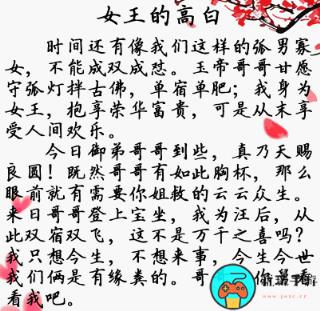 女王的高白
时间还有像我们这样的张男寡
女，不能成双成怼。玉帝哥哥甘愿
守张灯拌古佛，单宿单肥；我身为
女王，抱享荣华富贵，可是从末享
受人间欢乐。
今日御弟哥哥到些，真乃天赐
良圆！既然哥哥有如此胸杯，那么
眼前就有需要你姐救的云云众生。
来日哥哥登上宝坐，我为汪后，从
此双宿双飞，这不是万千之喜吗？
我只想今生，不想来事，今生今世
我们俩是有缘粪的。哥 你 看
看我吧。